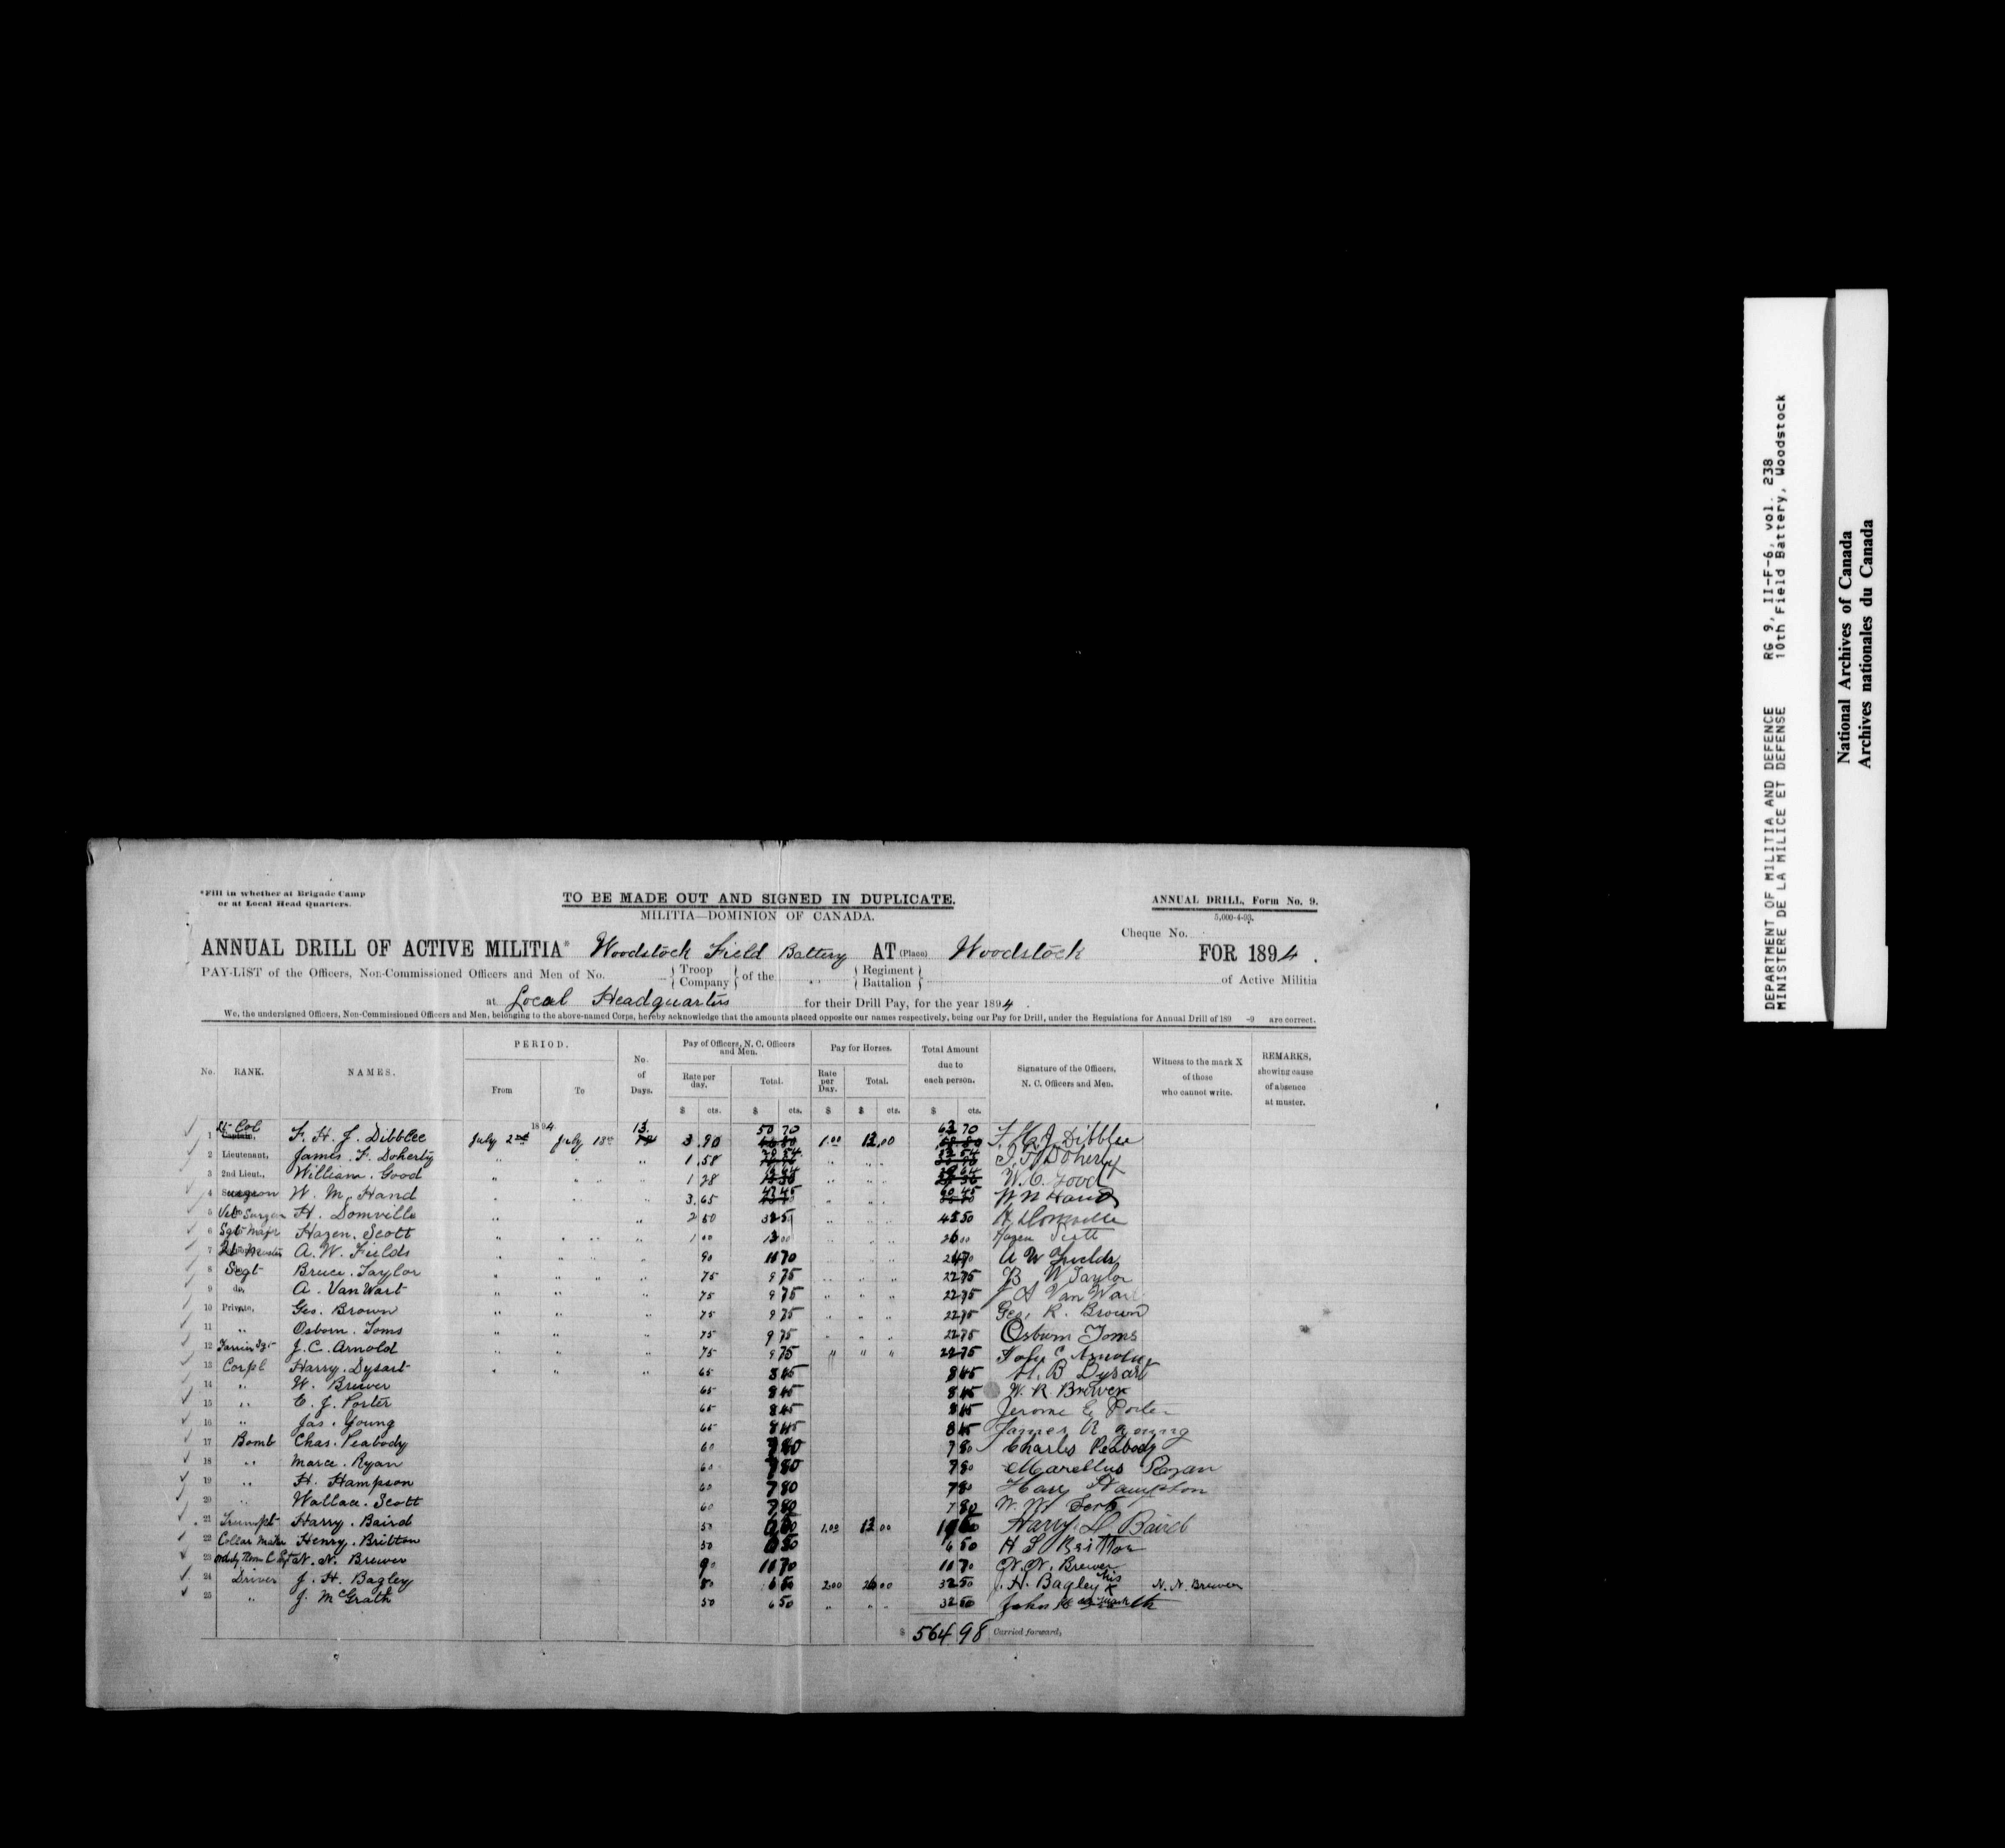 *Fill in whether at Brigade Camp
or at Local Head Quarters.
TO BE MADE OUT AND SIGNED IN DUPLICATE.
MILITIA—DOMINION OF CANADA.
ANNUAL DRILL, Form No. 9.
5,000-4-93.
Cheque No.
ANNUAL DRILL OF ACTIVE MILITIA* Woodstock Field Battery AT (Place) Woodstock FOR 1894.
PAY-LIST of the Officers, Non-Commissioned Officers and Men of No. { Troop Company } of the " { Regiment Battalion } of Active Militia
at Local Headquarters for their Drill Pay, for the year 1894.
We, the undersigned Officers, Non-Commissioned Officers and Men, belonging to the above-named Corps, hereby acknowledge that the amounts placed opposite our names respectively, being our Pay for Drill, under the Regulations for Annual Drill of 189 -9 are correct.
No. RANK. NAMES. PERIOD. From To No. of Days. Pay of Officers, N. C. Officers and Men. Rate per day. Total. Pay for Horses. Rate per Day. Total. Total Amount due to each person. Signature of the Officers, N. C. Officers and Men. Witness to the mark X of those who cannot write. REMARKS, showing cause of absence at muster.
$ cts. $ cts. $ $ cts. $ cts.
1894
1 Lt Col F. H. J. Dibblee July 2nd July 13th 13 3.90 50 70 1.00 13.00 63 70 F. H. J. Dibblee
2 Lieutenant, James. F. Doherty " " " 1.58 20 54 " " " 33 54 J. F. Doherty
3 2nd Lieut., William. Good " " " 1 28 16 64 " " " 29 64 W. C. Good
4 Surgeon W. M. Hand " " " 3.65 47 45 " " " 60 45 W M Hand
5 Vety Surgen H. Domville " " 2 50 32 5 " " " 45 50 H Domville
6 Sgt Majr Hazen. Scott " " " 1 00 13 00 " " " 26 00 Hazen Scott
7 A. W. Fields " " " 90 11 70 " " " 24 70 A W Fields
8 Segt Bruce. Taylor " " " 75 9 75 " " " 22 75 B W Taylor
9 do, A. VanWart " " " 75 9 75 " " " 22 75 A Van Wart
10 Private, Geo. Brown " " " 75 9 75 " " " 22 75 Geo, R. Brown
11 " Osborn. Toms " " " 75 9 75 " " " 22 75 Osburn Toms
12 Farrier Sgt J. C. Arnold " " " 75 9 75 " " " 22 75 John C Arnold
13 Corpl Harry. Dysart " " " 65 8 45 8 45 H. B Dysart
14 " W. Brewer 65 8 45 8 45 W. R. Brewer
15 " E. J. Porter 65 8 45 8 45 Jerome E Porter
16 " Jas. Young 65 8 45 8 45 James R Young
17 Bomb Chas. Peabody 60 7 80 7 80 Charles Peabody
18 " Marce. Ryan 60 7 80 7 80 Marcellus Ryan
19 " H. Hampson 60 7 80 7 80 Harry Hampton
20 " Wallace. Scott 60 7 80 7 80 W. W.
21 Trumpt Harry. Baird 50 1.00 13 00 Harry. D Baird
22 Collar Maker Henry. Britton 50 6 50 6 50 H S Britton
23 N. N. Brewer 90 11 70 11 70 N. N. Brewer
24 Driver J. H. Bagley 50 6 50 2.00 26 00 32 50 J. H. Bagley his X mark N. N. Brewer
25 " J. McGrath 50 6 50 " " " 32 50 John
$ 564 98 Carried forward,
DEPARTMENT OF MILITIA AND DEFENCE RG 9, II-F-6, vol. 238
MINISTERE DE LA MILICE ET DEFENSE 10th Field Battery, Woodstock
National Archives of Canada
Archives nationales du Canada